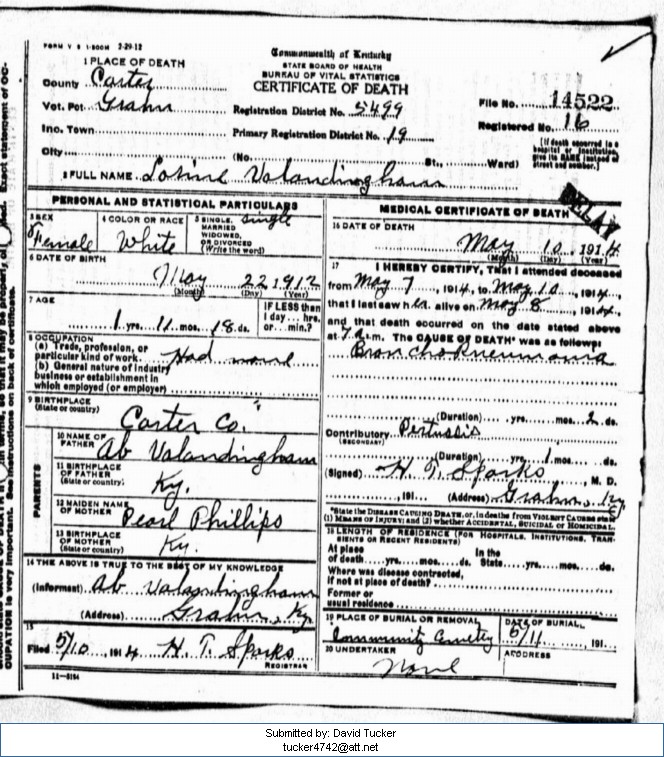 FORM V S 1-500M 2-29-12
Commonwealth of Kentucky
STATE BOARD OF HEALTH
BUREAU OF VITAL STATISTICS
CERTIFICATE OF DEATH
1 PLACE OF DEATH
County Carter
Vot. Pct Grahn
Registration District No. 5499
File No. 14522
Inc. Town
Primary Registration District No. 19
Registered No. 16
City (No. St., Ward)
[If death occurred in a
hospital or institution,
give its NAME instead of
street and number.]
2 FULL NAME Valandingham
DELAY
PERSONAL AND STATISTICAL PARTICULARS
3 SEX
Female
4 COLOR OR RACE
White
5 SINGLE, single
MARRIED
WIDOWED,
OR DIVORCED
(Write the word)
6 DATE OF BIRTH
May 22 1912
(Month) (Day) (Year)
7 AGE
1 yrs. 11 mos. 18 ds.
IF LESS than
1 day... hrs.
or... min.?
8 OCCUPATION
(a) Trade, profession, or
particular kind of work. Had none
(b) General nature of industry
business or establishment in
which employed (or employer)
9 BIRTHPLACE
(State or country) Carter Co.
PARENTS
10 NAME OF
FATHER Ab Valandingham
11 BIRTHPLACE
OF FATHER
(State or country) Ky.
12 MAIDEN NAME
OF MOTHER Pearl Phillips
13 BIRTHPLACE
OF MOTHER
(State or country) Ky.
14 THE ABOVE IS TRUE TO THE BEST OF MY KNOWLEDGE
(Informant) Ab Valandingham
(Address) Grahn, Ky.
15
Filed 5/10, 1914 H. T. Sparks
REGISTRAR
11-3184
MEDICAL CERTIFICATE OF DEATH
16 DATE OF DEATH
May 10 1914
(Month) (Day) (Year)
17 I HEREBY CERTIFY, THAT I attended deceased
from May 7, 1914, to May 10, 1914,
that I last saw her alive on May 8, 1914,
and that death occurred on the date stated above
at 7 a.m. The CAUSE OF DEATH* was as follows:
Bronchopneumonia
(Duration) yrs. mos. 2 ds.
Contributory Pertussis
(SECONDARY)
(Duration) yrs. 1 mos. ds.
(Signed) H. T. Sparks, M. D.
, 191 (Address) Grahn, Ky
*State the DISEASE CAUSING DEATH, or, in deaths from VIOLENT CAUSES state
(1) MEANS OF INJURY; and (2) whether ACCIDENTAL, SUICIDAL or HOMICIDAL.
18 LENGTH OF RESIDENCE (FOR HOSPITALS, INSTITUTIONS, TRAN-
SIENTS OR RECENT RESIDENTS)
At place In the
of death yrs. mos. ds. State yrs. mos. ds.
Where was disease contracted,
if not at place of death?
Former or
usual residence
19 PLACE OF BURIAL OR REMOVAL
Community Cemetery
DATE OF BURIAL
5/11, 191
20 UNDERTAKER
None
ADDRESS
Exact statement of OC-
CUPATION is very important. See instructions on back of certificate.
Submitted by: David Tucker
tucker4742@att.net